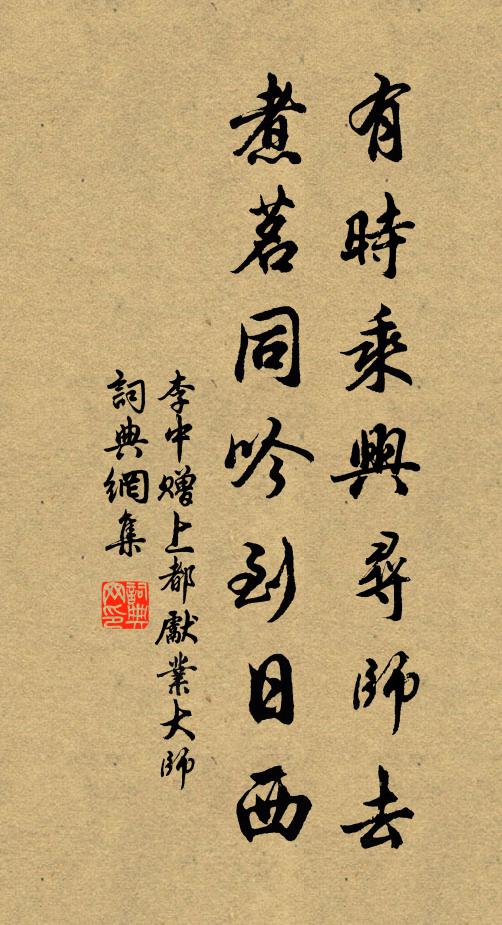 有時乘興尋師去
煮茗同吟到日西
李中贈上都獻業大師
詞典網集
詞典
网印